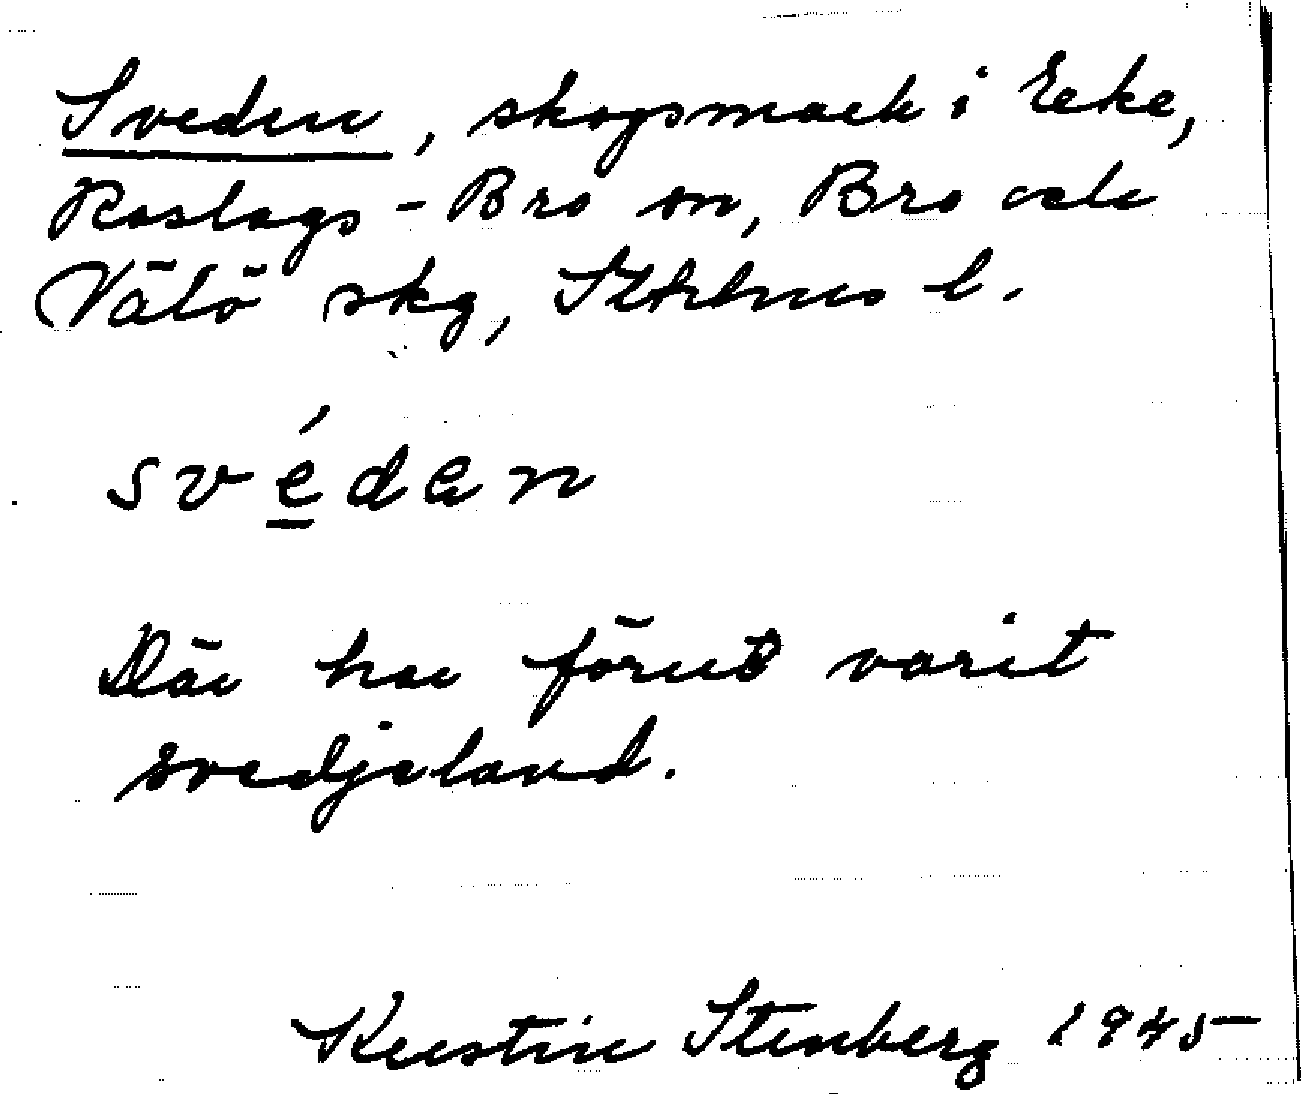 Sveden, skogsmark i Eke,
Roslags-Bro sn, Bro och
Vätö skg, Sthlms l.
svédan
Där har förut varit
svedjeland.
Kerstin Stenberg 1945